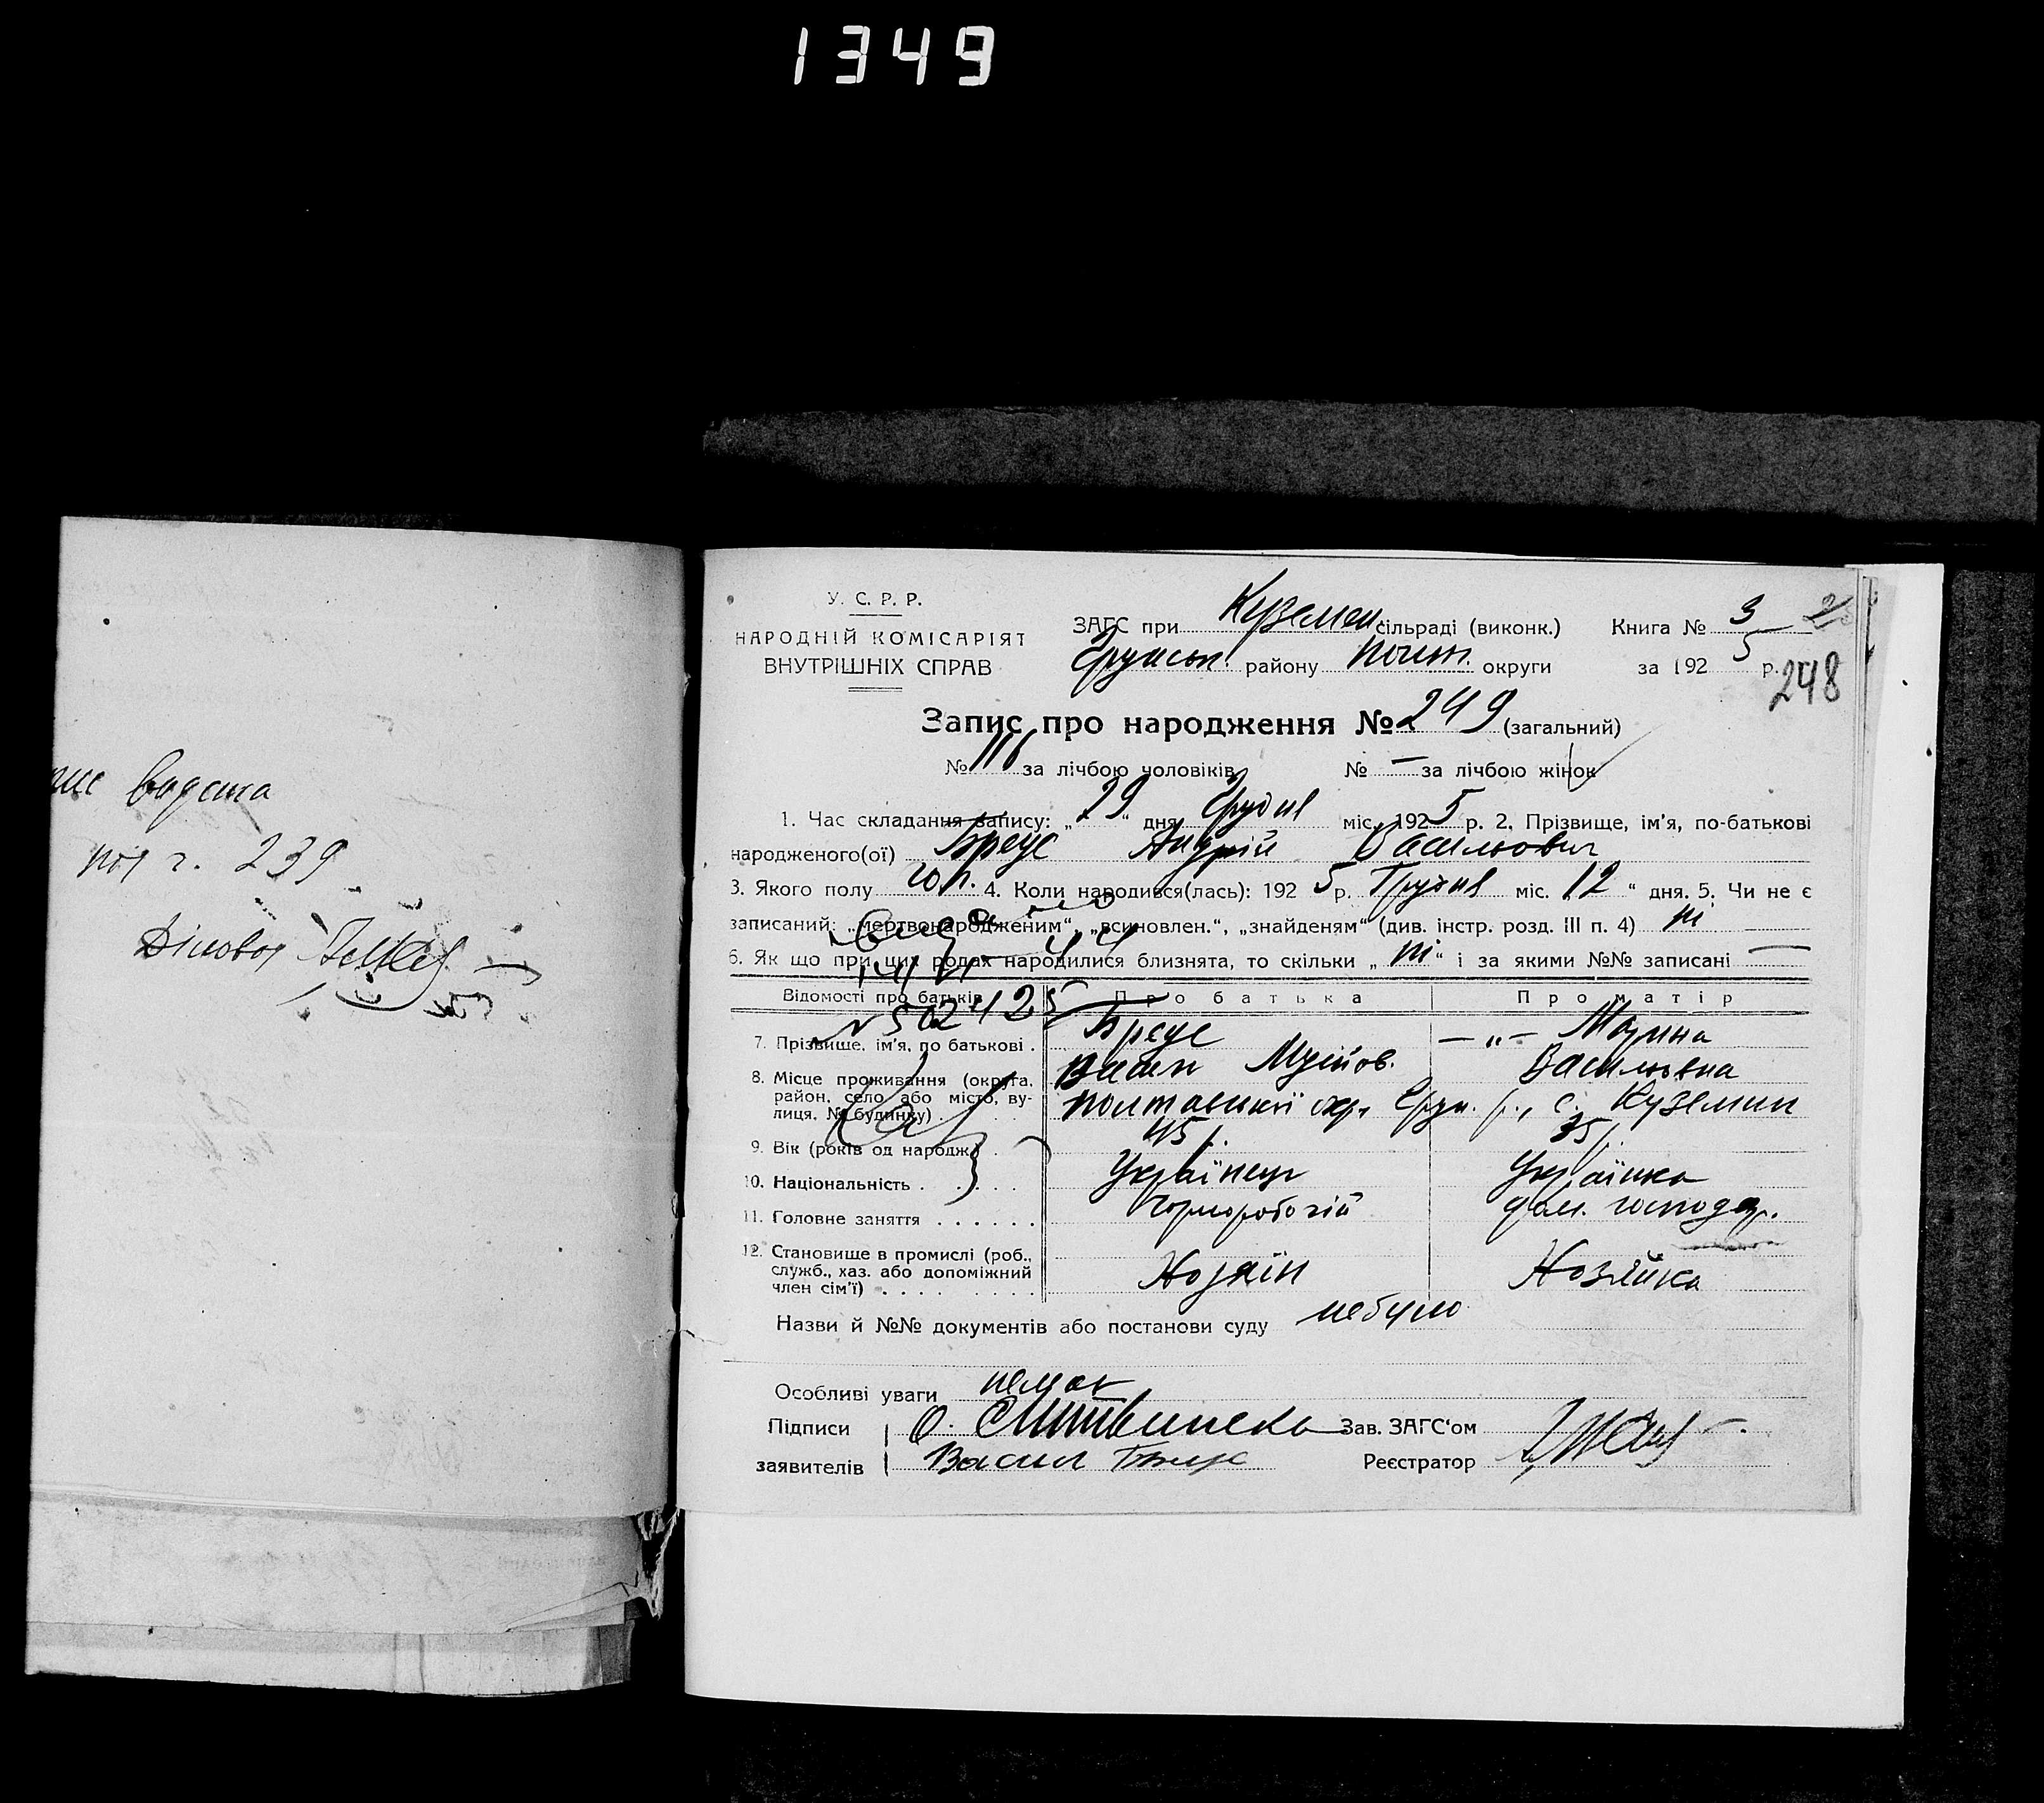 1349
видана
під ч. 239
Діловод
У. С. Р. Р.
НАРОДНІЙ КОМІСАРІЯТ
ВНУТРІШНІХ СПРАВ
ЗАГС при Куземен. сільраді (виконк.) Книга № 3
Грунськ. району Полт. округи за 1925 р.
248
Запис про народження № 249 (загальний)
№ 116 за лічбою чоловіків № — за лічбою жінок
1. Час складання запису: „29“ дня Грудня міс. 1925 р. 2. Прізвище, ім'я, по-батькові
народженого(ої) Бреус Андрій Васильович
3. Якого полу чол. 4. Коли народився(лась): 1925 р. Грудня міс. 12 “ дня. 5. Чи не є
записаний: „мертвонародженим“, „всиновлен.“, „знайденям“ (див. інстр. розд. III п. 4) ні
6. Як що при цих родах народилися близнята, то скільки „ні“ і за якими №№ записані —
Відомості про батьків Про батька Про матір
7. Прізвище, ім'я, по батькові . Бреус —„— Марина
Васил Мусійов. Васильовна
8. Місце проживання (округа, район, село або місто, вулиця, № будинку) . Полтавської окр. Грун. р., с. Куземин
9. Вік (років од народж.) . 45 р. 35 р.
10. Національність . . . . . Українець Українка
11. Головне заняття . . . . . . Чорноробочій дом. господар.
12. Становище в промислі (роб., служб., хаз. або допоміжний член сім'ї) . . . . . . . . Хозяїн Хозяйка
Назви й №№ документів або постанови суду небуло
Особливі уваги немає
Підписи О. Зав. ЗАГС‘ом
заявителів Васил Реєстратор